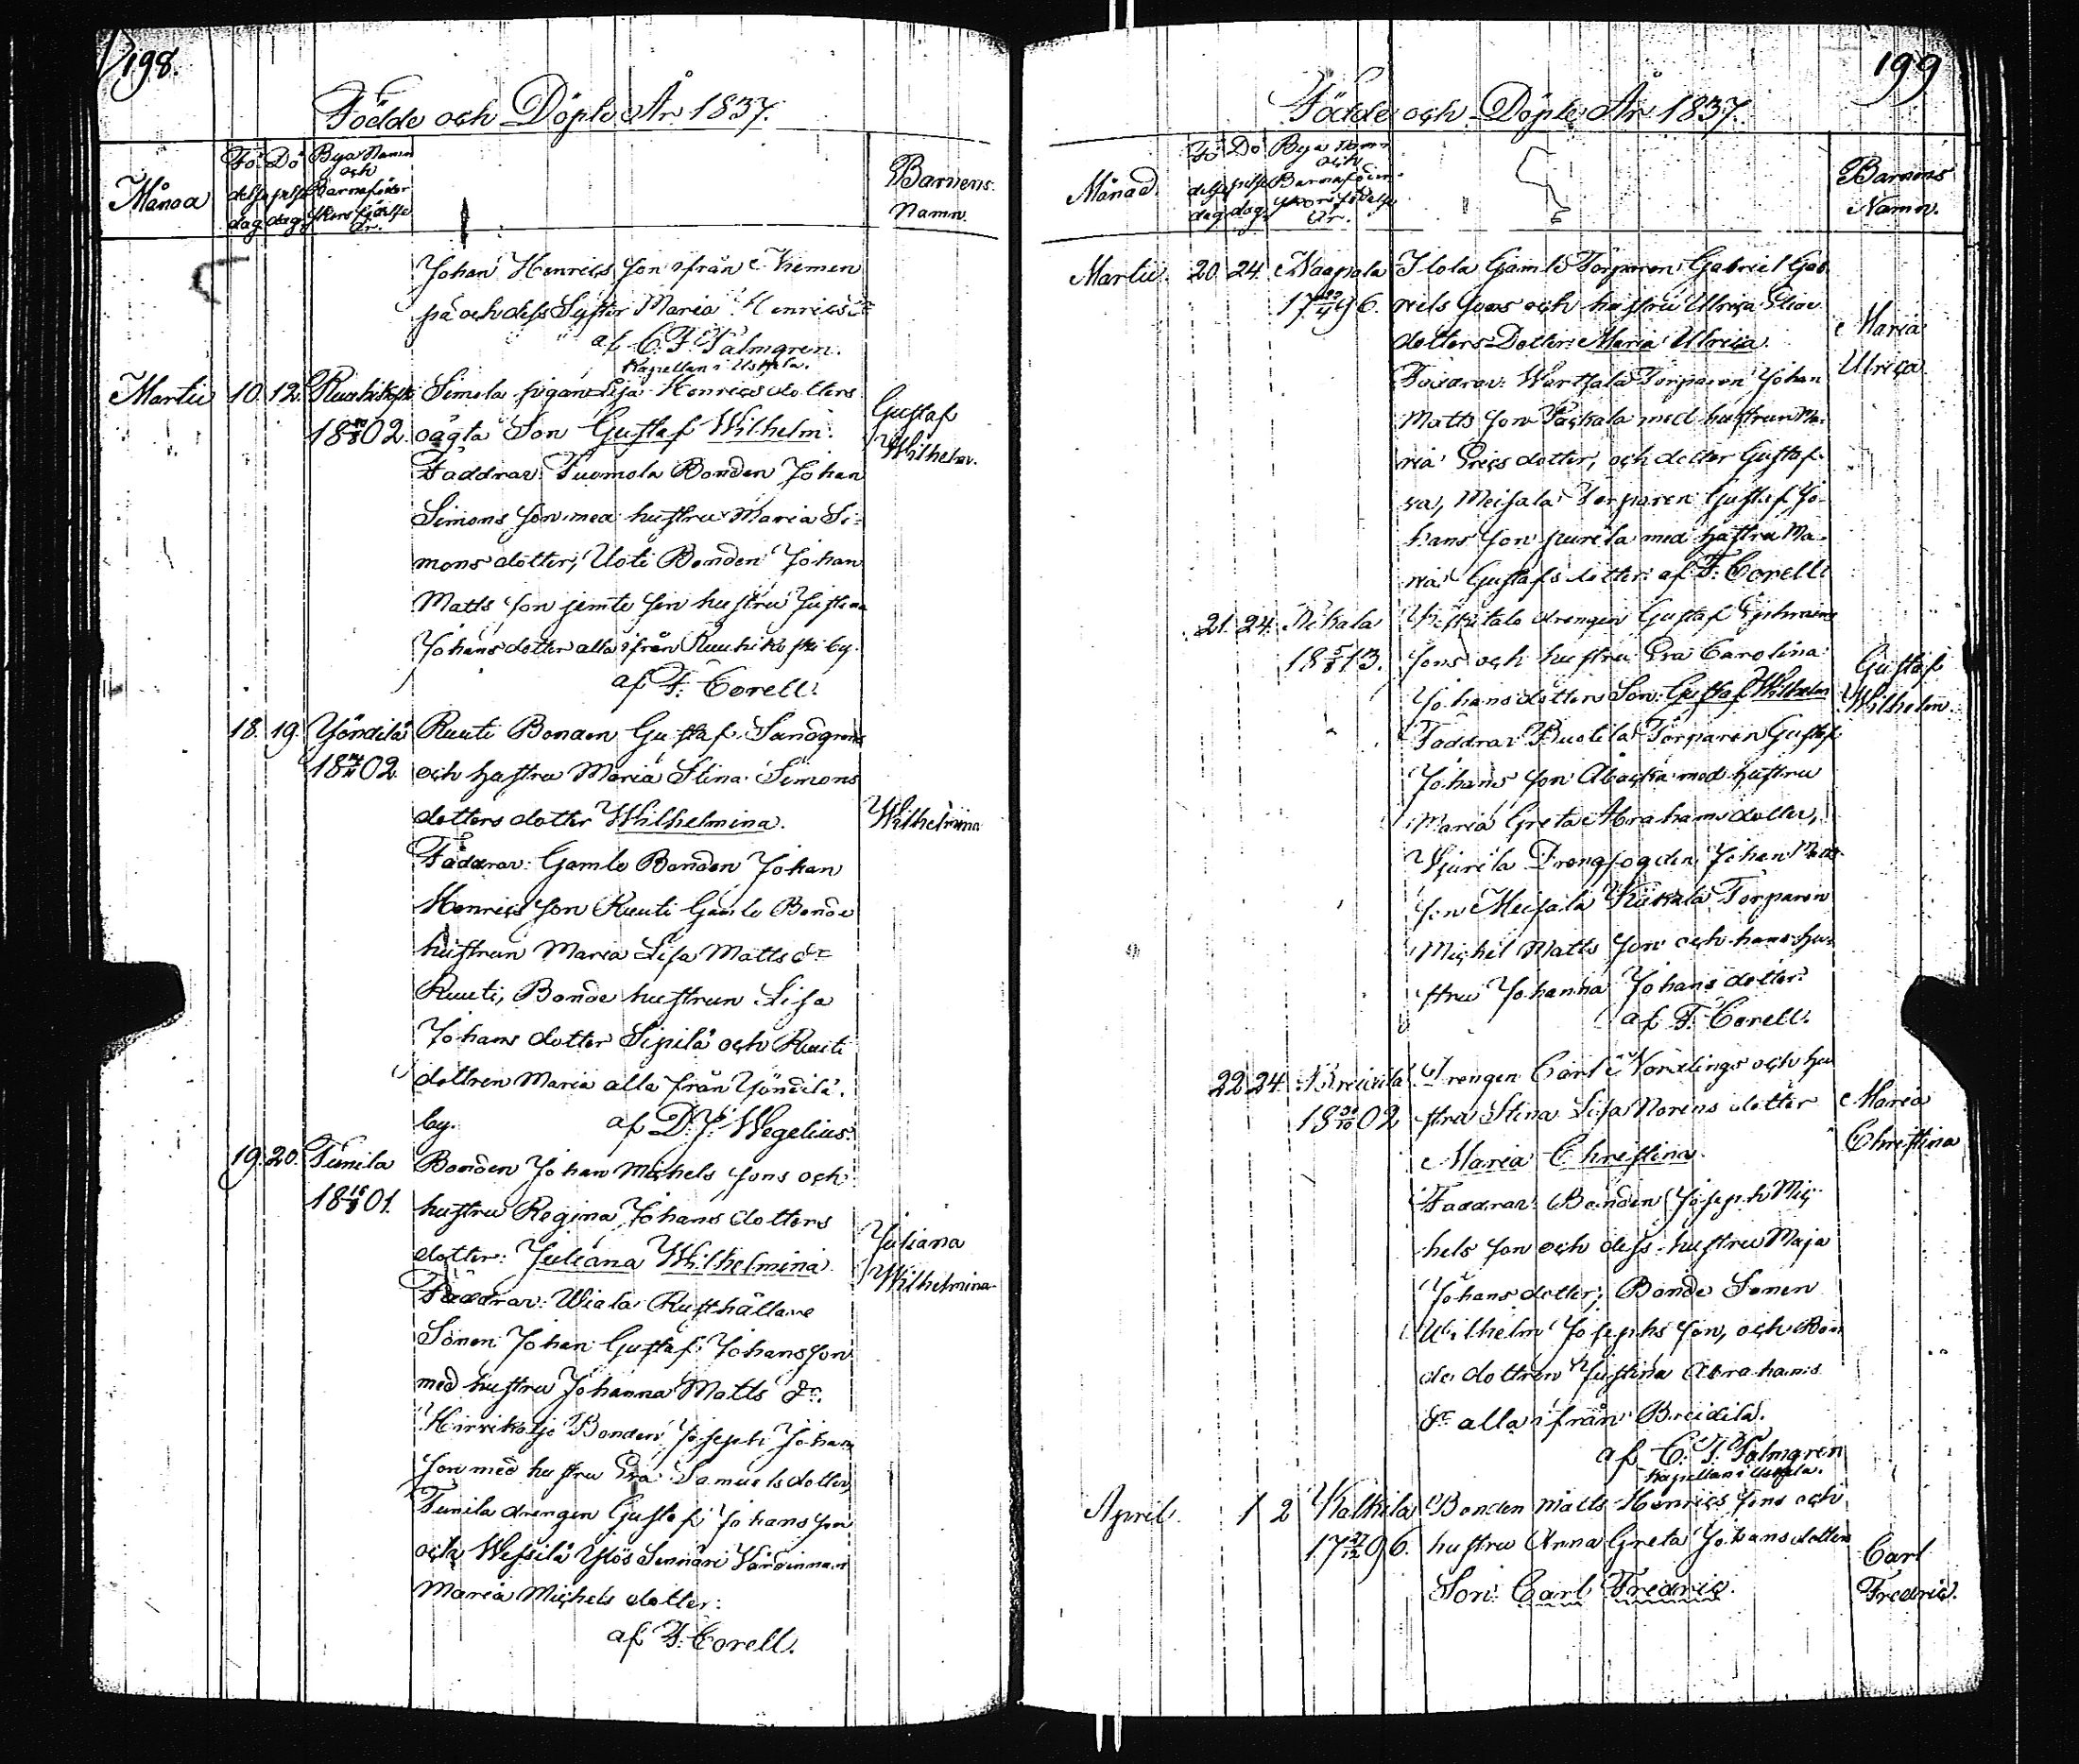 198.
Födde och Döpte År 1837.
Månad
Fö
delse
dag
Dö
pelse
dag
Bya Namn
och
Barnaföder
skors födelse
År.
Barnens
Namn.
Johan Henrics son ifrån Niemen
pä och dess Syster Maria Henricsdr
af C. F. Palmgren.
Kapellan i Uskela.
Martii 10. 12. Ruuhikoski Simola pigan Lisa Henricsdotters
1802. oägta Son Gustaf Wilhelm.
Gustaf
Wilhelm.
Faddrar: Tuomola Bonden Johan
Simons son med hustru Maria Si-
mons dotter, Uoti Bonden Johan
Matts son jemte sin hustru Justina
Johans dotter alla ifrån Ruuhikoski by.
af F. Corell.
18. 19. Yöndilä Ruuti Bonden Gustaf Sandgrens
1802. och hustru Maria Stina Simons
dotters dotter Wilhelmina.
Wilhelmina
Faddrar: Gamle Bonden Johan
Henrics son Ruuti Gamle Bonde
hustrun Maria Lisa Matts dr
Ruuti, Bonde hustrun Lisa
Johans dotter Sipilä och Ruuti
dottren Maria alla från Yöndilä
by. af D. J. Wegelius.
19. 20. Tunila Bonden Johan Michels sons och
18 16/8 01. hustru Regina Johans dotters
dotter: Juliana Wilhelmina
Juliana
Wilhelmina
Faddrar: Wiala Rusthållare
Sonen Johan Gustaf Johans son
med hustru Johanna Matts dr.
Hirvikoije Bonden Joseph Johans
son med hustru Eva Samuels dotter,
Tunila drengen Gustaf Johans son
och Wessilä Ylös Sinnäri Värdinnan
Maria Michels dotter:
af F. Corell.
199
Födde och Döpte År 1837.
Månad
Fö
delse
dag
Dö
pelse
dag
Bya Namn
och
Barnaföder
skors födelse
År.
Barnens
Namn.
Martii. 20. 24. Naapala Ilola Gamle Torparen Gabriel Gab-
1796. riels sons och hustru Ulrica Elias
dotters Dotter: Maria Ulrica.
Maria
Ulrica
Faddrar: Wartsala Torparen Johan
Matts son Packala med hustrun Ma-
ria Erics dotter, och dotter Gustaf-
va, Meisala Torparen Gustaf Jo-
hans son Juvela med hustru Ma-
ria Gustafs dotter: af F. Corell
21. 24. drengen Gustaf Ephraims
18 5/8 13. sons och hustru Eva Carolina
Johans dotters Son: Gustaf Wilhelm
Gustaf
Wilhelm.
Faddrar: Buotila Torparen Gustaf
Johans son Abacka med hustru
Maria Greta Abrahams dotter,
Drengfogden Johan Matts
son Meisala Kukala Torparen
Michel Matts son och hans hu-
stru Johanna Johans dotter:
af F. Corell.
22. 24. Breidila Drengen Carl Nordlings och hu
1802 stru Stina Lisa Norens dotter
Maria Christina.
Maria
Christina
Faddrar: Bonden Joseph Mic-
hels son och dess hustru Maja
Johans dotter; Bonde Sonen
Wilhelm Josephs son, och Bon
de dottren Justina Abrahams
dr alla ifrån Breidila.
af C. F. Palmgren
Kapellan i Uskela.
April. 1 2 Kalkila Bonden Matts Henrics sons och
17 27/12 96. hustru Anna Greta Johans dotters
Son: Carl Fredric.
Carl
Fredric.